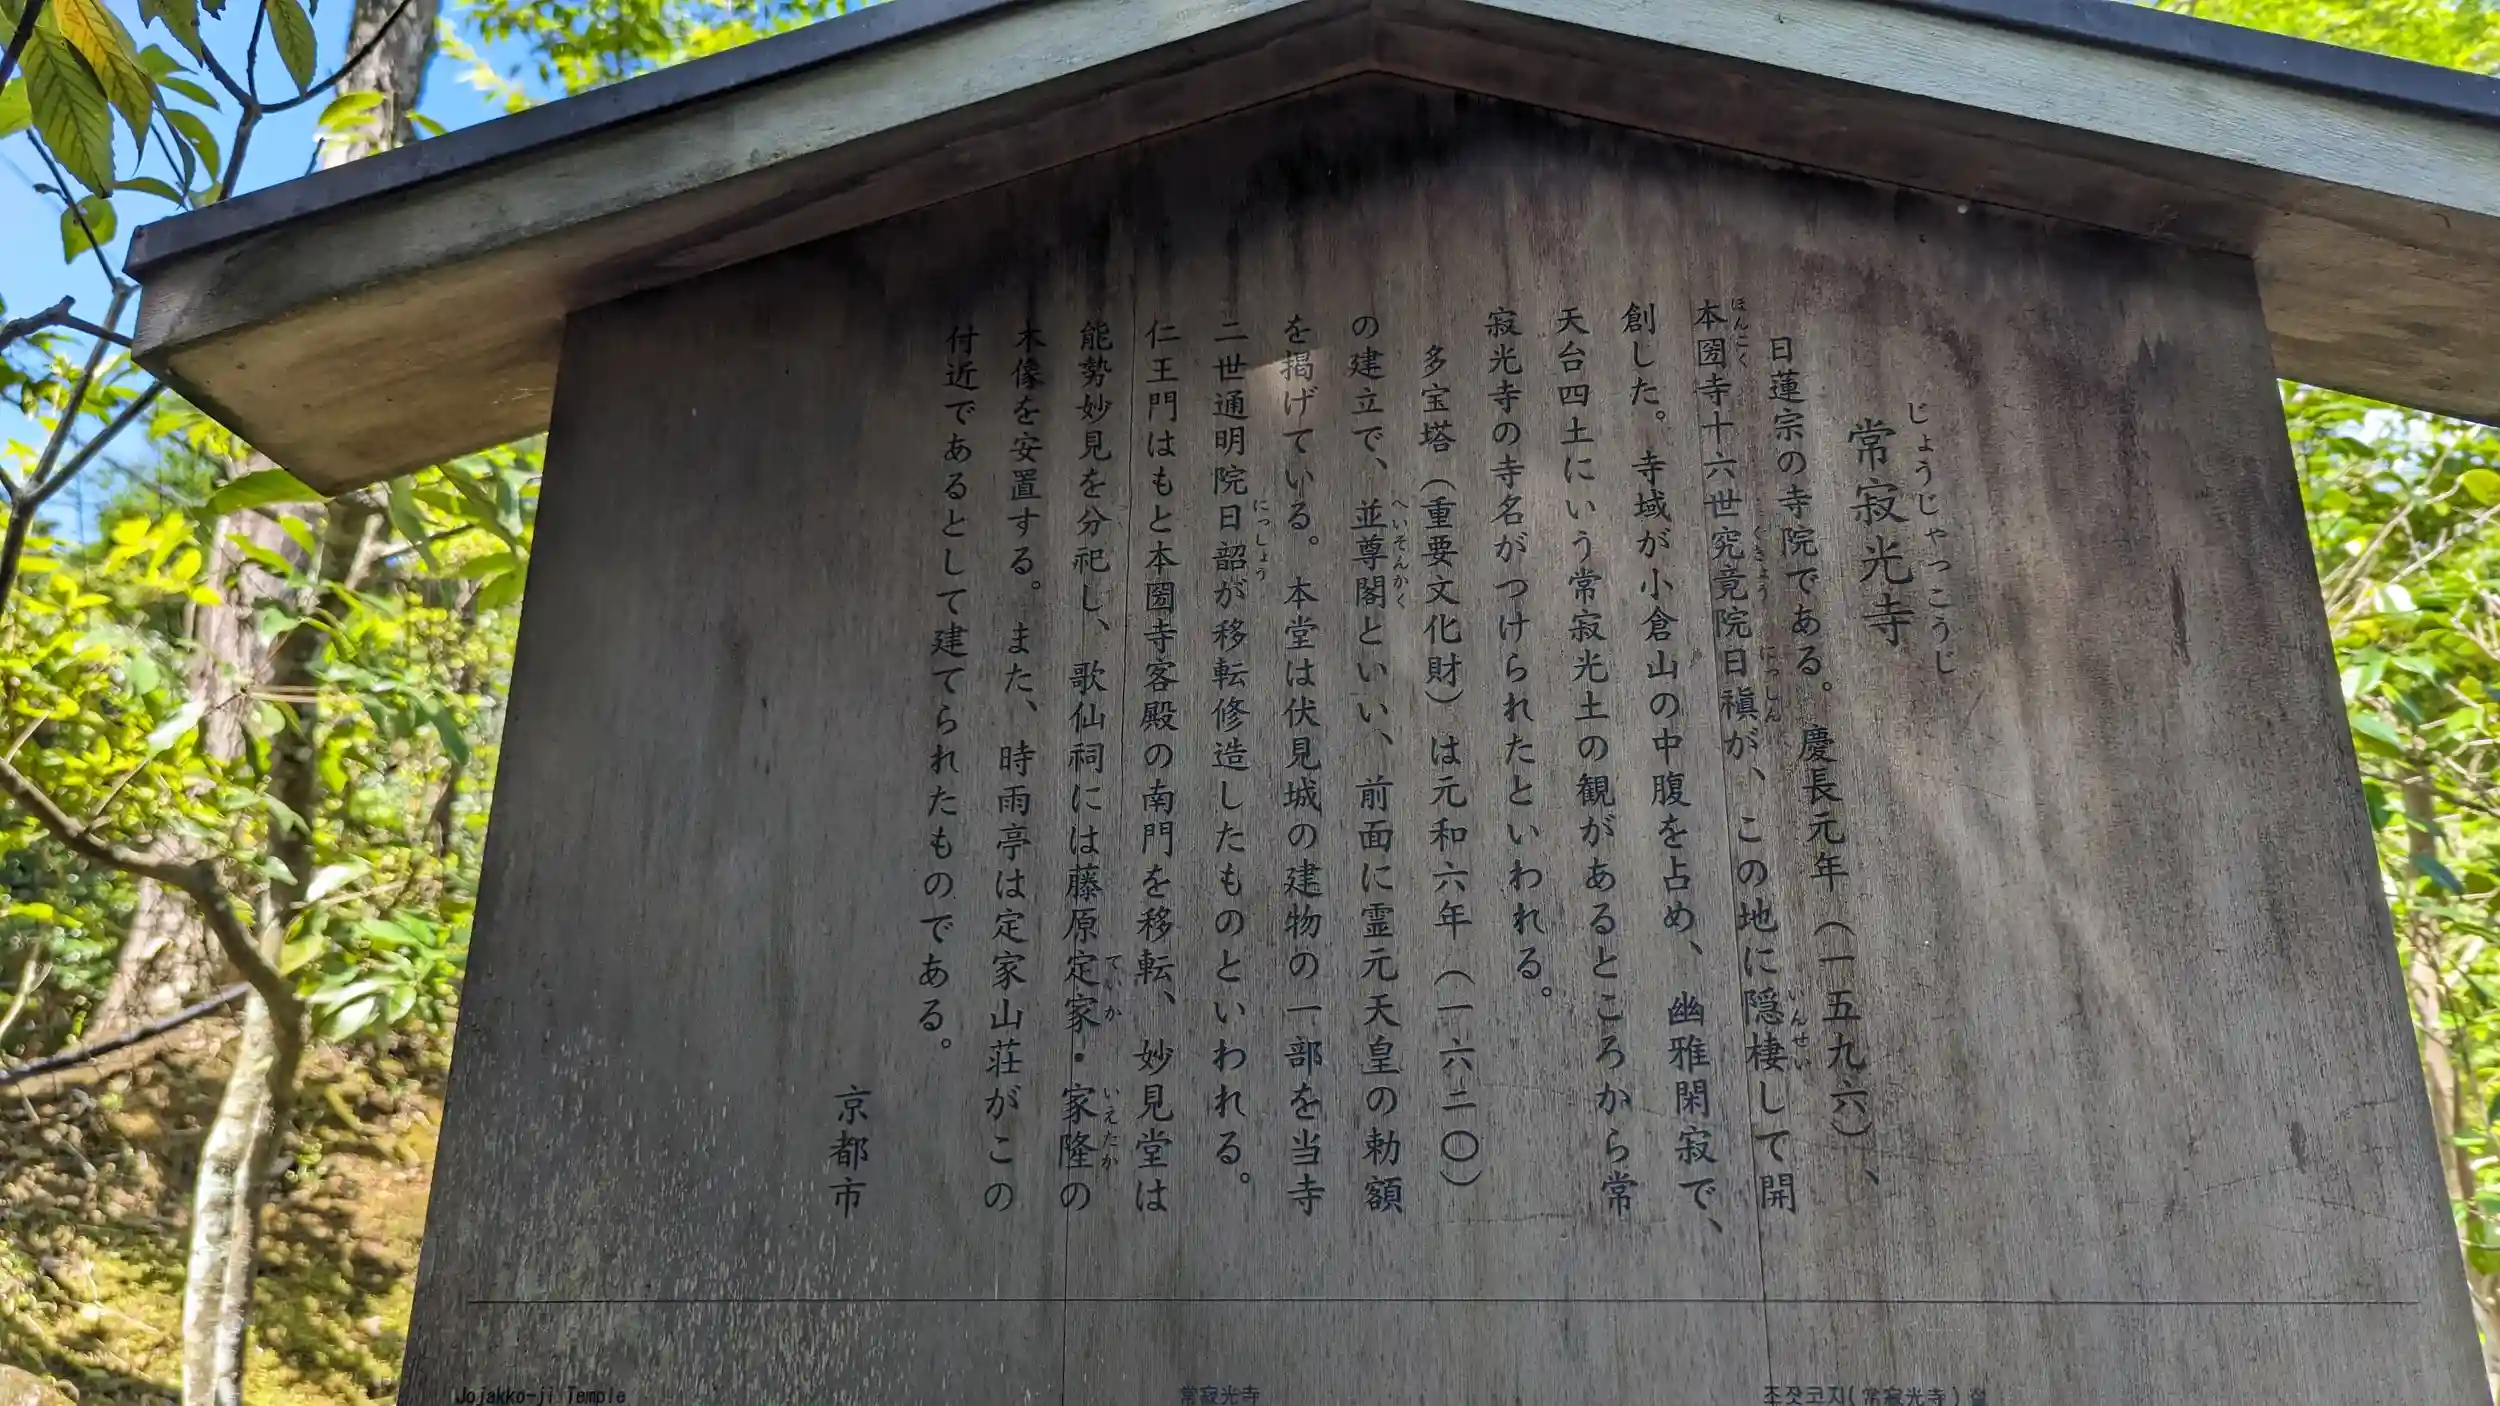 じょうじゃっこうじ
常寂光寺
日蓮宗の寺院である。慶長元年（一五九六）、
ほんこく　くきょう　にっしん　いんせい
本圀寺十六世究竟院日禛が、この地に隠棲して開
創した。寺域が小倉山の中腹を占め、幽雅閑寂で、
天台四土にいう常寂光土の観があるところから常
寂光寺の寺名がつけられたといわれる。
多宝塔（重要文化財）は元和六年（一六二〇）
へいそんかく
の建立で、並尊閣といい、前面に霊元天皇の勅額
を掲げている。本堂は伏見城の建物の一部を当寺
にっしょう
二世通明院日韶が移転修造したものといわれる。
仁王門はもと本圀寺客殿の南門を移転、妙見堂は
ていか　いえたか
能勢妙見を分祀し、歌仙祠には藤原定家・家隆の
木像を安置する。また、時雨亭は定家山荘がこの
付近であるとして建てられたものである。
京都市
Jojakko-ji Temple
常寂光寺
조잣코지(常寂光寺)절